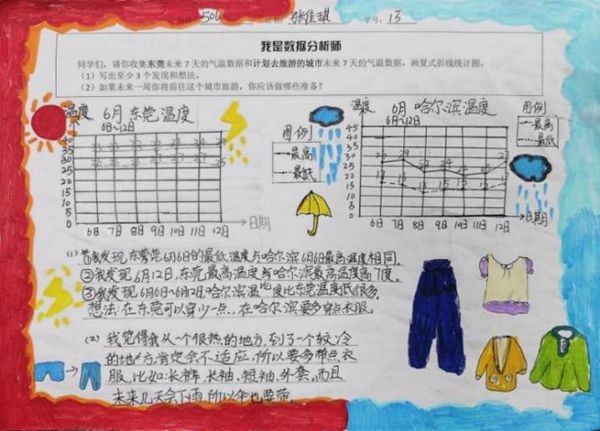 506 张佳琪 学号: 13
我是数据分析师
同学们，请你收集东莞未来7天的气温数据和计划去旅游的城市未来7天的气温数据，画复式折线统计图。
（1）写出至少3个发现和想法。
（2）如果未来一周你将前往这个城市旅游，你应该做哪些准备？
温度 6月东莞温度
6日~12日
图例
最高
最低
45
40
35
30
25
20
15
10
5
0
6日 7日 8日 9日 10日 11日 12日 日期
温度 6月 哈尔滨温度
6日~12日
图例
最高
最低
45
40
35
30
25
20
15
10
5
0
6日 7日 8日 9日 10日 11日 12日 日期
(1) ①我发现东莞6月6日的最低温度与哈尔滨6月6日最高温度相同。
②我发现6月12日,东莞最高温度与哈尔滨最高温度高7度。
③我发现6月6日~6月12日,哈尔滨温度比东莞温度低很多。
想法:在东莞可以穿少一点,在哈尔滨要多穿点衣服。
(2) 我觉得我从一个很热的地方,到了一个较冷
的地方,肯定会不适应,所以要多带点衣
服,比如:长裤、长袖、短袖、外套,而且
未来几天会下雨,所以伞也要带。